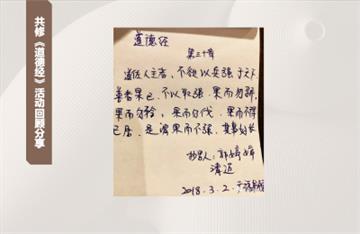 共修《道德经》活动回顾分享
道德经
第三十章
道佐人主者，不欲以兵强于天下
善者果已，不以取强，果而勿骄，
果而勿矜，果而勿伐，果而不得
已居，是谓果而不强，其事好长
抄写人：郭婷婷
清迈
2018.3.2.